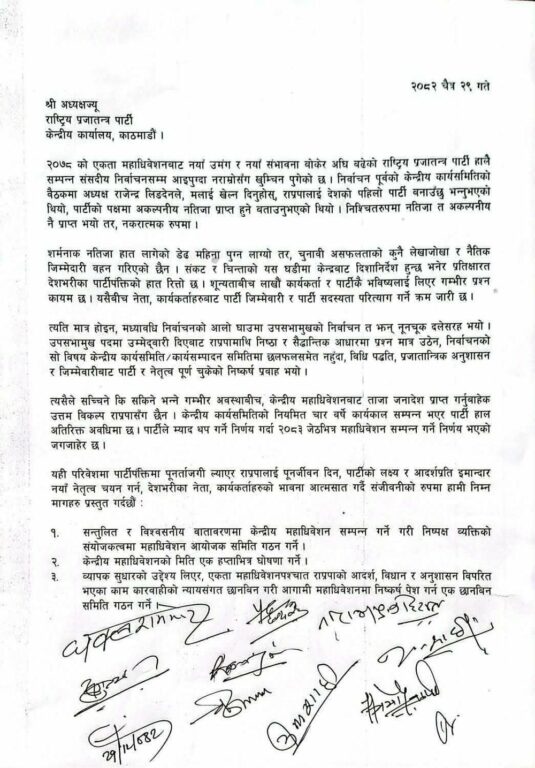 २०८२ चैत्र २९ गते
श्री अध्यक्षज्यू
राष्ट्रिय प्रजातन्त्र पार्टी
केन्द्रीय कार्यालय, काठमाडौं ।
२०७८ को एकता महाधिवेशनबाट नयाँ उमंग र नयाँ संभावना बोकेर अघि बढेको राष्ट्रिय प्रजातन्त्र पार्टी हालै
सम्पन्न संसदीय निर्वाचनसम्म आइपुग्दा नराम्रोसँग खुम्चिन पुगेको छ । निर्वाचन पूर्वको केन्द्रीय कार्यसमितिको
बैठकमा अध्यक्ष राजेन्द्र लिङदेनले, मलाई खेल्न दिनुहोस्, राप्रपालाई देशको पहिलो पार्टी बनाउँछु भन्नुभएको
थियो, पार्टीको पक्षमा अकल्पनीय नतिजा प्राप्त हुने बताउनुभएको थियो । निश्चितरुपमा नतिजा त अकल्पनीय
नै प्राप्त भयो तर, नकारात्मक रुपमा ।
शर्मनाक नतिजा हात लागेको डेढ महिना पुग्न लाग्यो तर, चुनावी असफलताको कुनै लेखाजोखा र नैतिक
जिम्मेदारी वहन गरिएको छैन । संकट र चिन्ताको यस घडीमा केन्द्रबाट दिशानिर्देश हुन्छ भनेर प्रतिक्षारत
देशभरीका पार्टीपंक्तिको हात रित्तो छ । शून्यताबीच लाखौं कार्यकर्ता र पार्टीकै भविष्यलाई लिएर गम्भीर प्रश्न
कायम छ । यसैबीच नेता, कार्यकर्ताहरुबाट पार्टी जिम्मेवारी र पार्टी सदस्यता परित्याग गर्ने क्रम जारी छ ।
त्यति मात्र होइन, मध्यावधि निर्वाचनको आलो घाउमा उपसभामुखको निर्वाचन त झन् नूनचूक दलेसरह भयो ।
उपसभामुख पदमा उम्मेद्वारी दिएबाट राप्रपामाथि निष्ठा र सैद्धान्तिक आधारमा प्रश्न मात्र उठेन, निर्वाचनको
सो विषय केन्द्रीय कार्यसमिति/कार्यसम्पादन समितिमा छलफलसमेत नहुँदा, विधि पद्धति, प्रजातान्त्रिक अनुशासन
र जिम्मेवारीबाट पार्टी र नेतृत्व पूर्ण चुकेको निष्कर्ष प्रवाह भयो ।
त्यसैले सच्चिने कि सकिने भन्ने गम्भीर अवस्थाबीच, केन्द्रीय महाधिवेशनबाट ताजा जनादेश प्राप्त गर्नुबाहेक
उत्तम विकल्प राप्रपासँग छैन । केन्द्रीय कार्यसमितिको नियमित चार वर्षे कार्यकाल सम्पन्न भएर पार्टी हाल
अतिरिक्त अवधिमा छ । पार्टीले म्याद थप गर्ने निर्णय गर्दा २०८३ जेठभित्र महाधिवेशन सम्पन्न गर्ने निर्णय भएको
जगजाहेर छ ।
यही परिवेशमा पार्टीपंक्तिमा पुनर्ताजगी ल्याएर राप्रपालाई पूनर्जीवन दिन, पार्टीको लक्ष्य र आदर्शप्रति इमान्दार
नयाँ नेतृत्व चयन गर्न, देशभरीका नेता, कार्यकर्ताहरुको भावना आत्मसात गर्दै संजीवनीको रुपमा हामी निम्न
मागहरु प्रस्तुत गर्दछौं :
१. सन्तुलित र विश्वसनीय वातावरणमा केन्द्रीय महाधिवेशन सम्पन्न गर्ने गरी निष्पक्ष व्यक्तिको
संयोजकत्वमा महाधिवेशन आयोजक समिति गठन गर्ने ।
२. केन्द्रीय महाधिवेशनको मिति एक हप्ताभित्र घोषणा गर्ने ।
३. व्यापक सुधारको उद्देश्य लिएर, एकता महाधिवेशनपश्चात राप्रपाको आदर्श, विधान र अनुशासन विपरित
भएका काम कारवाहीको न्यायसंगत छानबिन गरी आगामी महाधिवेशनमा निष्कर्ष पेश गर्न एक छानबिन
समिति गठन गर्ने ।